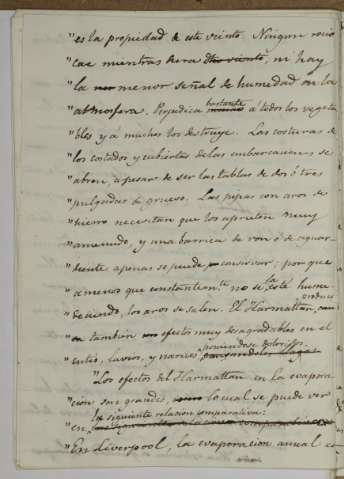 "es la propiedad de este viento. Ningun rocio
"cae mientras dura este viento, ni hay
"la menor señal de humedad en la
"atmosfera. Perjudica bastante a todos los vegeta
"bles y á muchos los destruye. Las costuras de
"los costados y cubiertas de las embarcaciones se
"abren, a pesar de ser las tablas de dos ó tres
"pulgadas de grueso. Las pipas con aros de
"hierro necesitan que los aprieten muy
"amenudo, y una barrica de ron ó de aguar-
"diente apenas se puede conservar; por que
"a menos que constantem.te no se la esté hume-
"deciendo, los aros se salen. El Harmattan, produce
"también efectos muy desagradables en el
"cutis, labios, y narices poniendose dolorosos.
"Los efectos del Harmattan en la evapora
"cion son grandes, lo cual se puede ver
"en la siguiente relacion comparativa:
"En Liverpool, la evaporacion anual